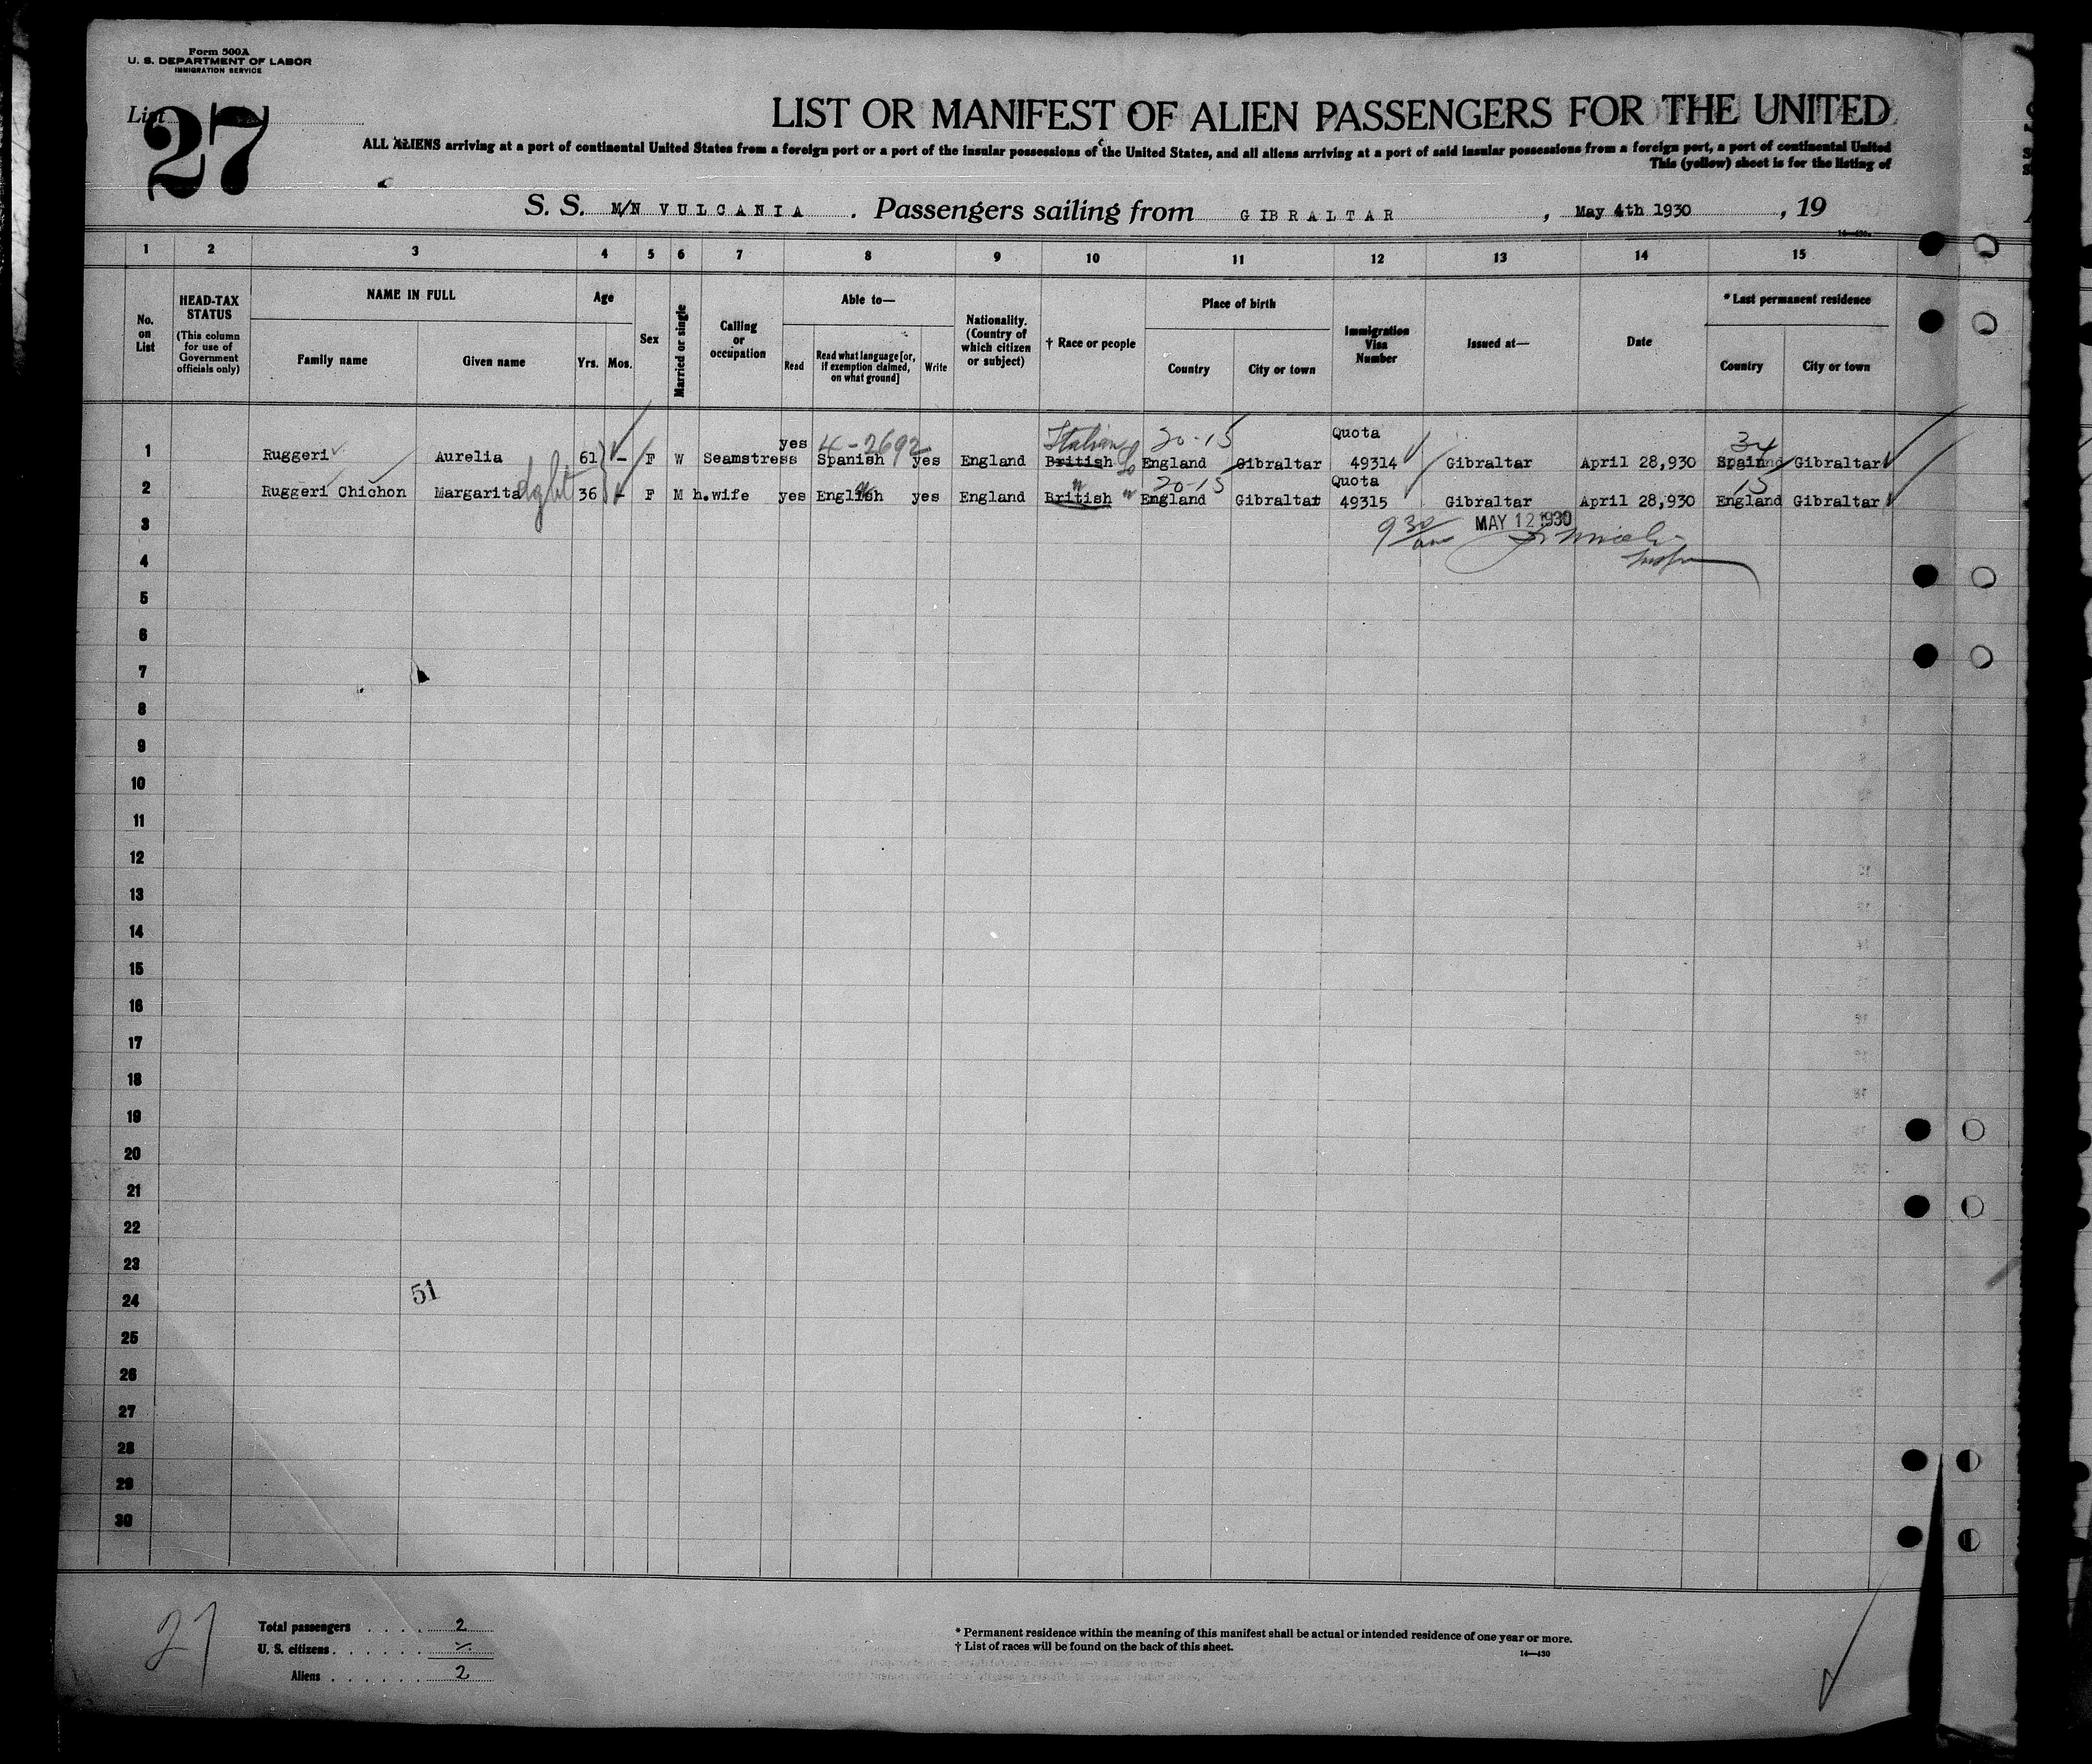 Form 500A
U. S. DEPARTMENT OF LABOR
IMMIGRATION SERVICE
List
27
LIST OR MANIFEST OF ALIEN PASSENGERS FOR THE UNITED
ALL ALIENS arriving at a port of continental United States from a foreign port or a port of the insular possessions of the United States, and all aliens arriving at a port of said insular possessions from a foreign port, a port of continental United
This (yellow) sheet is for the listing of
S. S. M/N VULCANIA . Passengers sailing from GIBRALTAR , May 4th 1930 , 19
1 2 3 4 5 6 7 8 9 10 11 12 13 14 15
No. on List
HEAD-TAX STATUS (This column for use of Government officials only)
NAME IN FULL
Family name
Given name
Age
Yrs.
Mos.
Sex
Married or single
Calling or occupation
Able to—
Read
Read what language [or, if exemption claimed, on what ground]
Write
Nationality. (Country of which citizen or subject)
† Race or people
Place of birth
Country
City or town
Immigration Visa Number
Issued at—
Date
* Last permanent residence
Country
City or town
4-2692 Italian 20-15 Quota 34
1 Ruggeri Aurelia 61 - F W Seamstress yes Spanish yes England British England Gibraltar 49314 Gibraltar April 28,930 Spain Gibraltar
dght " 20-15 Quota 15
2 Ruggeri Chichon Margarita 36 - F M h.wife yes English yes England British England Gibraltar 49315 Gibraltar April 28,930 England Gibraltar
3 9 30 am MAY 12 1930
4
5
6
7
8
9
10
11
12
13
14
15
16
17
18
19
20
21
22
23
24 51
25
26
27
28
29
30
27
Total passengers . . . . 2
U. S. citizens . . . . . .
Aliens . . . . . . 2
* Permanent residence within the meaning of this manifest shall be actual or intended residence of one year or more.
† List of races will be found on the back of this sheet.
14—430